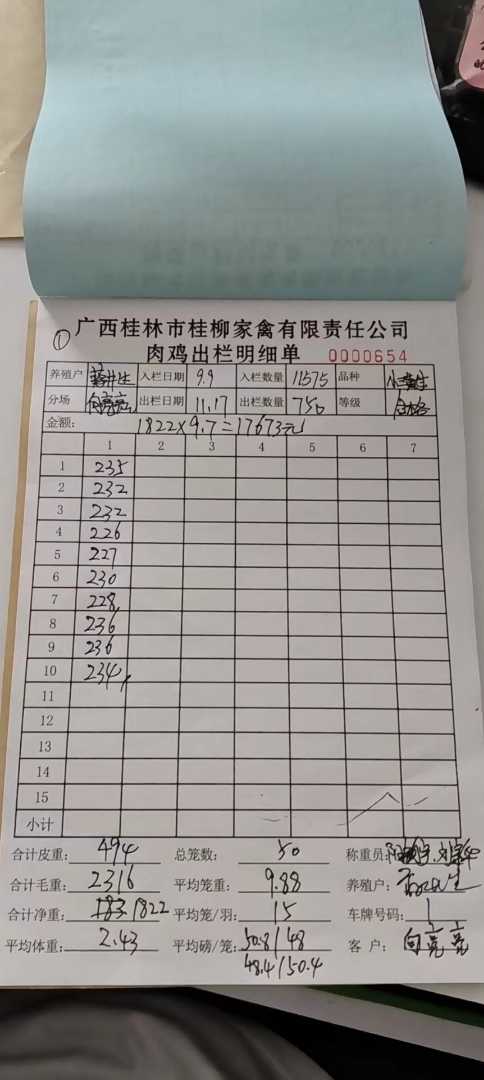 ① 广西桂林市桂柳家禽有限责任公司
肉鸡出栏明细单 0000654
养殖户 入栏日期 9.9 入栏数量 11575 品种
分场 向亮亮 出栏日期 11.17 出栏数量 750 等级 合格
金额: 1822×9.7=17673元
1 2 3 4 5 6 7
1 235
2 232
3 232
4 226
5 227
6 230
7 228
8 236
9 236
10 234
11
12
13
14
15
小计
合计皮重: 494 总笼数: 50 称重员:
合计毛重: 2316 平均笼重: 9.88 养殖户:
合计净重: 1822 平均笼/羽: 15 车牌号码: 1
平均体重: 2.43 平均磅/笼: 50.8/48 客户: 向亮亮
48.4/50.4